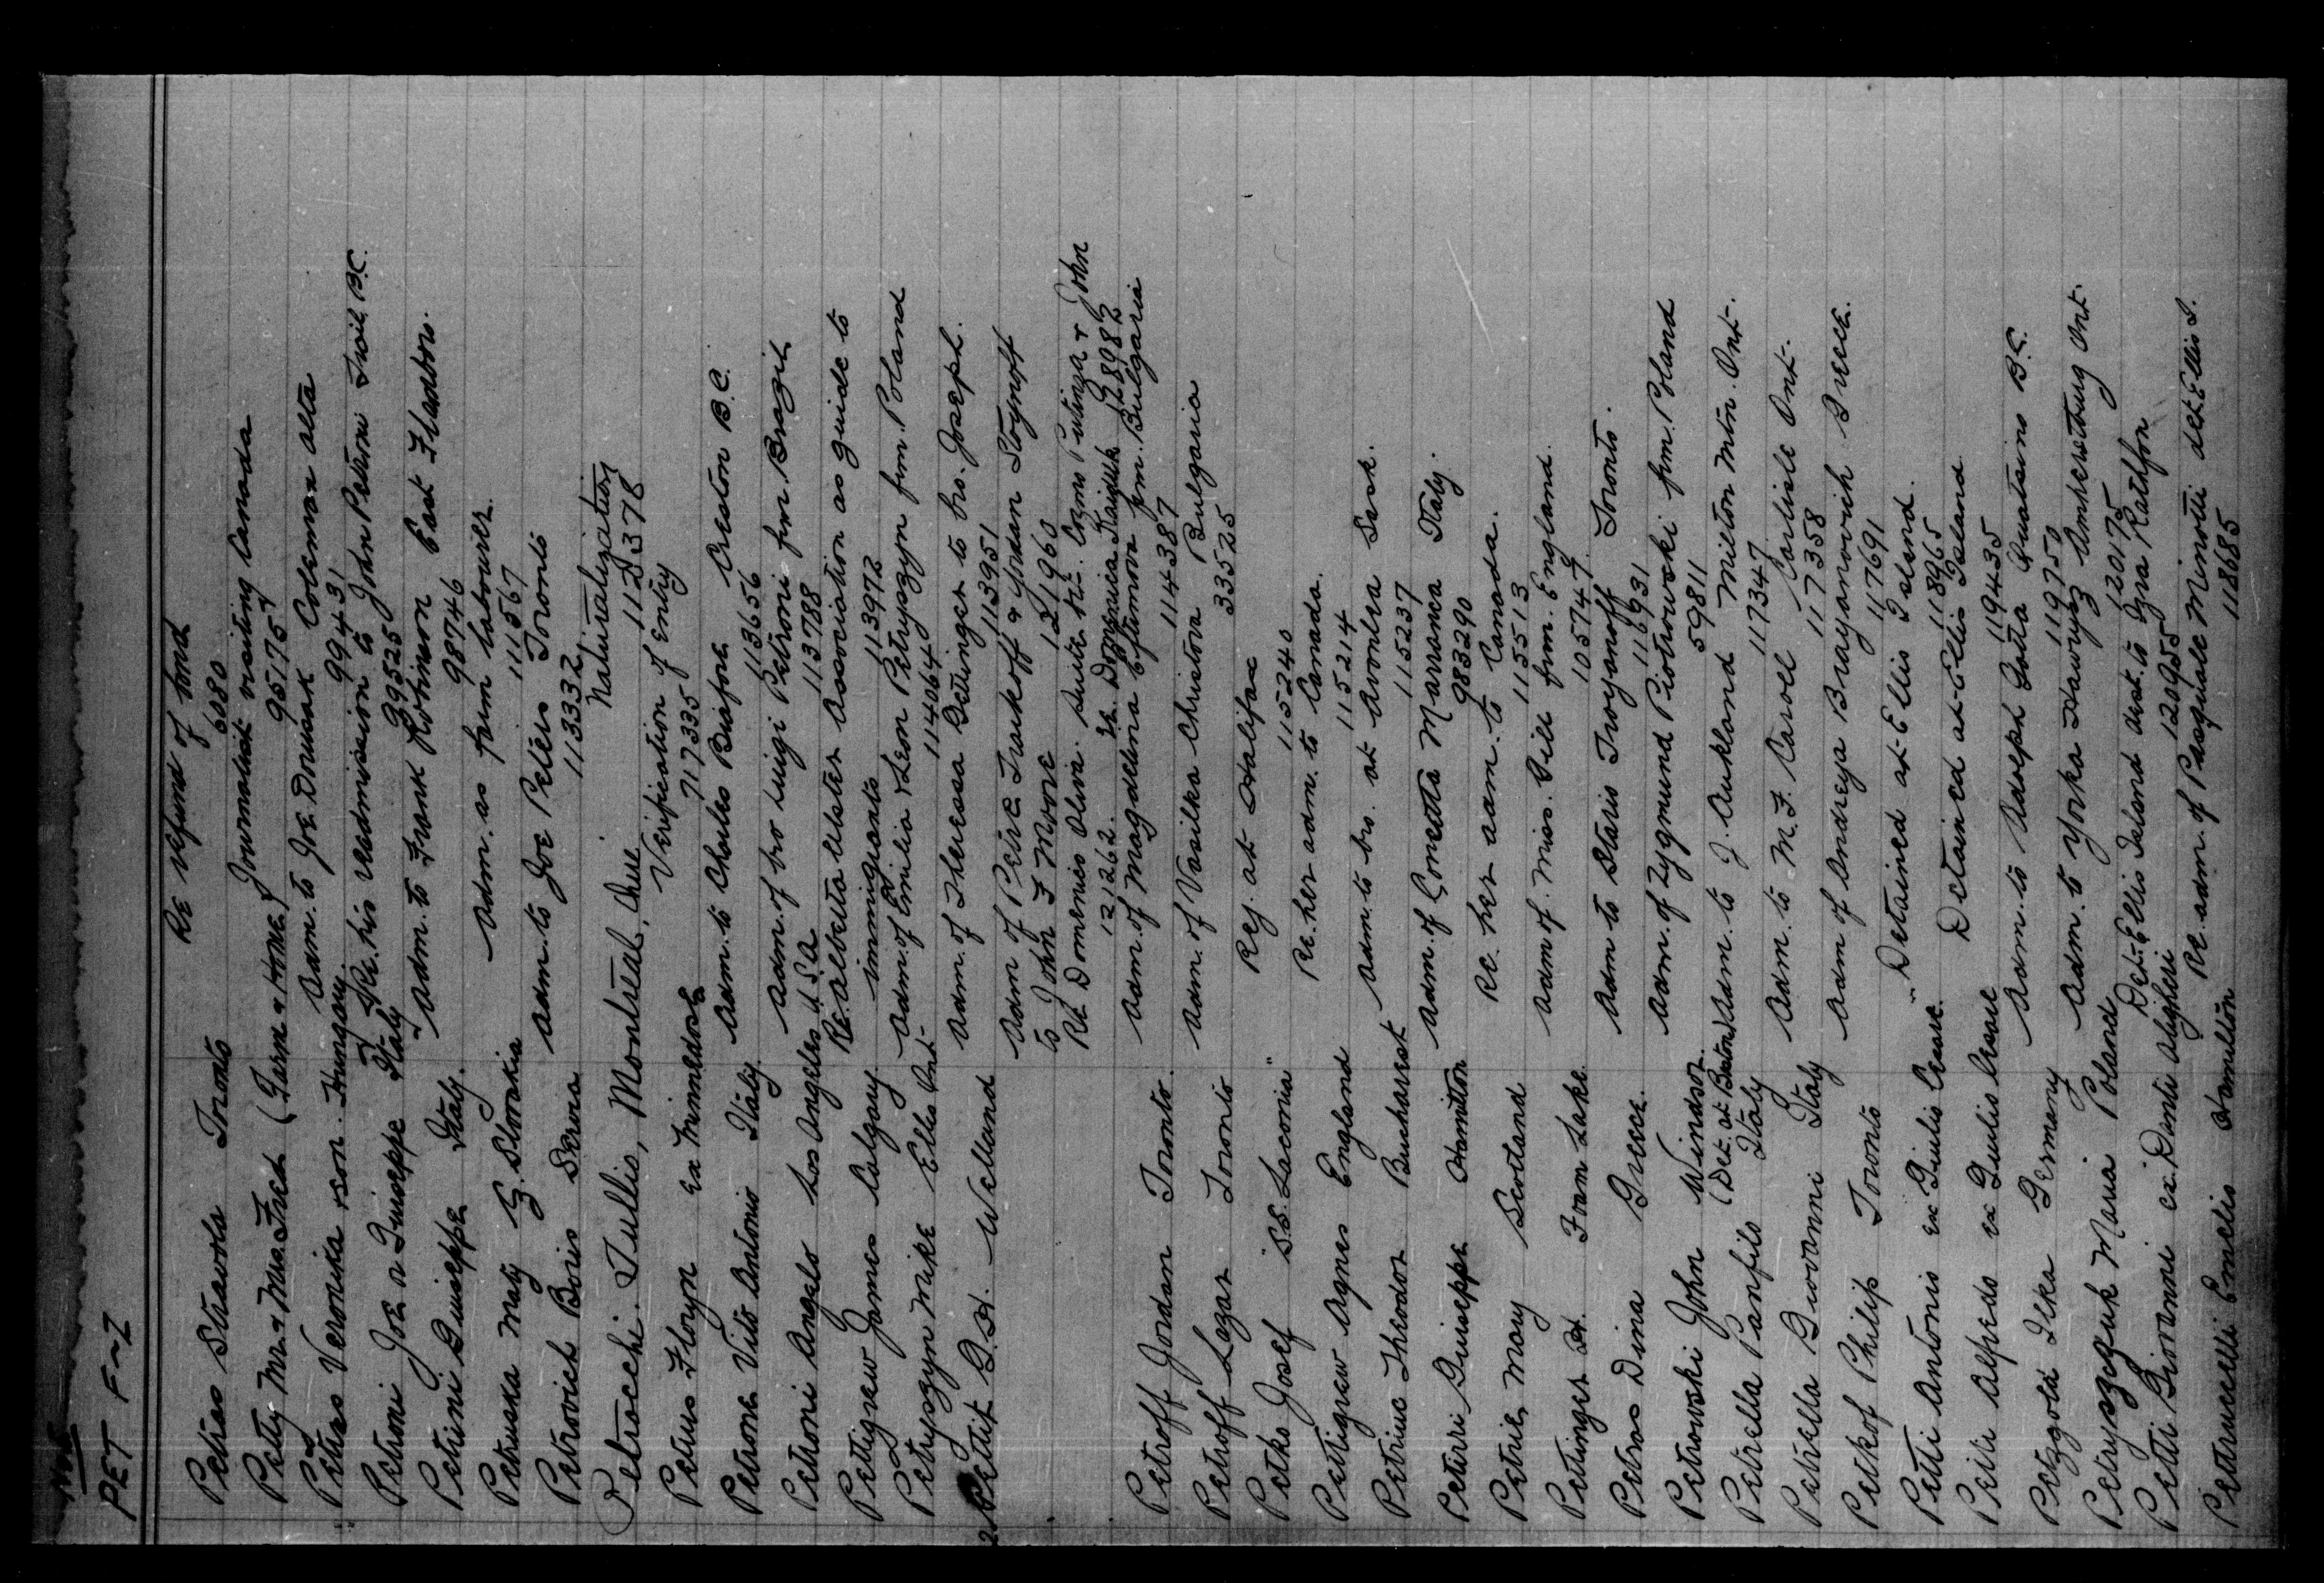 PET F-Z
Petras Stavola Toronto Re refund of bond 6080
Petty Mr. & Mrs. Fred (Farm & Home) Journalist visiting Canada 95175
Petras Veronika & son. Hungary Adm. to Joe Drusak Coleman Alta 99431
Petroni Joe or Guiseppe Italy Re. his readmission to John Petroni Trail, B.C. 39525
Petrini Guiseppe Italy. Adm. to Frank Robinson East Flamboro. 98746
Petruska Matj Z. Slovakia Adm. as farm labourer 111567
Petrovich Boris Servia Adm. to Joe Peters Toronto 113332
Petrocchi. Tullio, Montreal, Que. Naturalization 112D378
Petrus Floryn Ex Minnedosa Verification of entry 717335
Petrone Vito Antonio Italy Adm. to Charles Buisfore Creston B.C. 113656
Petroni Angelo Los Angeles U.S.A. Adm. of bro Luigi Petroni frm Brazil 113788
Pettigrew James Calgary Re. Alberta Ulster Association as guide to immigrants 113972
Petryszyn Mike Ella Ont. Adm. of Emilia & Leon Petryszyn frm. Poland 114064
Pettit G.H. Welland Adm. of Theressa Getinger to bro. Joseph. 113951
Adm of Petre Traikoff & Yordan Stoynoff
to John F Moore 121960
Re Domenico Oliva. Suite Kr. Cosmo Putinga & John
121262. Re. Domenica Kaiguk 128982
Petroff Jordan Toronto. Adm. of Magdelina Eftimova frm. Bulgaria 114387
Petroff Lazar Toronto Adm. of Vasilka Christova Bulgaria 33525
Petko Josef "S.S. Laconia" Rej. at Halifax 115240
Pettigrew Agnes England Re. her adm. to Canada. 115214
Petriuc Theodor Bucharest Adm. to bro. at Avonlea Sask. 115237
Petirri Guiseppe Hamilton Adm. of Concetta Marranca Italy. 983290
Petrie, Mary Scotland Re. her adm. to Canada. 115513
Pettinger H. Foam Lake. Adm of Miss. Gill frm. England. 105747
Petros Dina Greece. Adm to Staris Troyanoff Toronto. 116931
Petrowski John Windsor. Adm. of Zygmund Piotrowski frm. Poland 59811
Petrella Panfilo (Det. at Boston) Italy Adm. to J. Aukland Milton Mtn. Ont. 117347
Petrella Giovanni Italy Adm. to M.F. Caroll Carlisle Ont. 117358
Petkof Philip Toronto Adm of Andreya Brayanovich Greece. 117691
Petti Antonio ex Giulio Cesare. Detained at Ellis Island. 118965
Petti Alfredo ex Guilio Cesare Detained at Ellis Island 119435
Petzgold Ilka Germany Adm. to Adolph Gotta Quatsino B.C. 119750
Petryszczuk Maria Poland Adm. to Yorka Hawrysz Amherstburg Ont. 120175
Petti Giovanni ex. Dante Alighieri Det. Ellis Island dest. to Ezra Rathfon 120955
Petrucelli Emelio Hamilton Re. adm. of Pasquale Minotti det. Ellis I. 118685